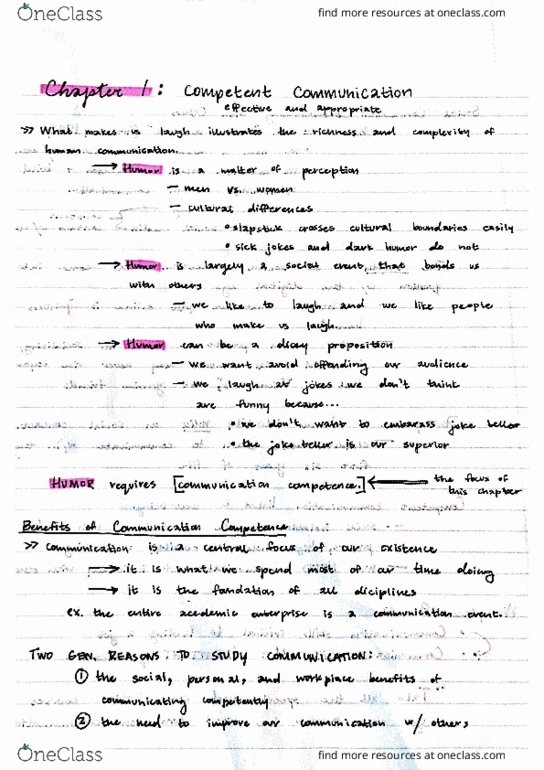 OneClass
find more resources at oneclass.com
Chapter 1: Competent Communication
effective and appropriate
>> What makes us laugh illustrates the richness and complexity of
human communication.
→ Humor is a matter of perception
— men vs. women
— cultural differences
• slapstick crosses cultural boundaries easily
• sick jokes and dark humor do not
→ Humor is largely a social event, that bonds us
with others
— we like to laugh and we like people
who make us laugh.
→ Humor can be a dicey proposition
— we want avoid offending our audience
— we laugh at jokes we don't think
are funny because...
• we don't want to embarass joke teller
• the joke teller is our superior
HUMOR requires [communication competence.] ← the focus of
this chapter
Benefits of Communication Competence
>> communication is a central focus of our existence
→ it is what we spend most of our time doing
→ it is the foundation of all diciplines
ex. the entire academic enterprise is a communication event.
TWO GEN. REASONS TO STUDY COMMUNICATION:
① the social, personal, and workplace benefits of
communicating competently
② the need to improve our communication w/ others
OneClass
find more resources at oneclass.com